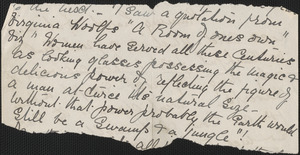 to the next - "I saw a quotation from"
Virginia Woolf's "A Room of One's Own
"Women have served all these centuries
as looking glasses possessing the magic &
delicious power of reflecting the figure of
a man at twice its natural size -
without that power probably the Earth would
still be a swamp & a jungle"!